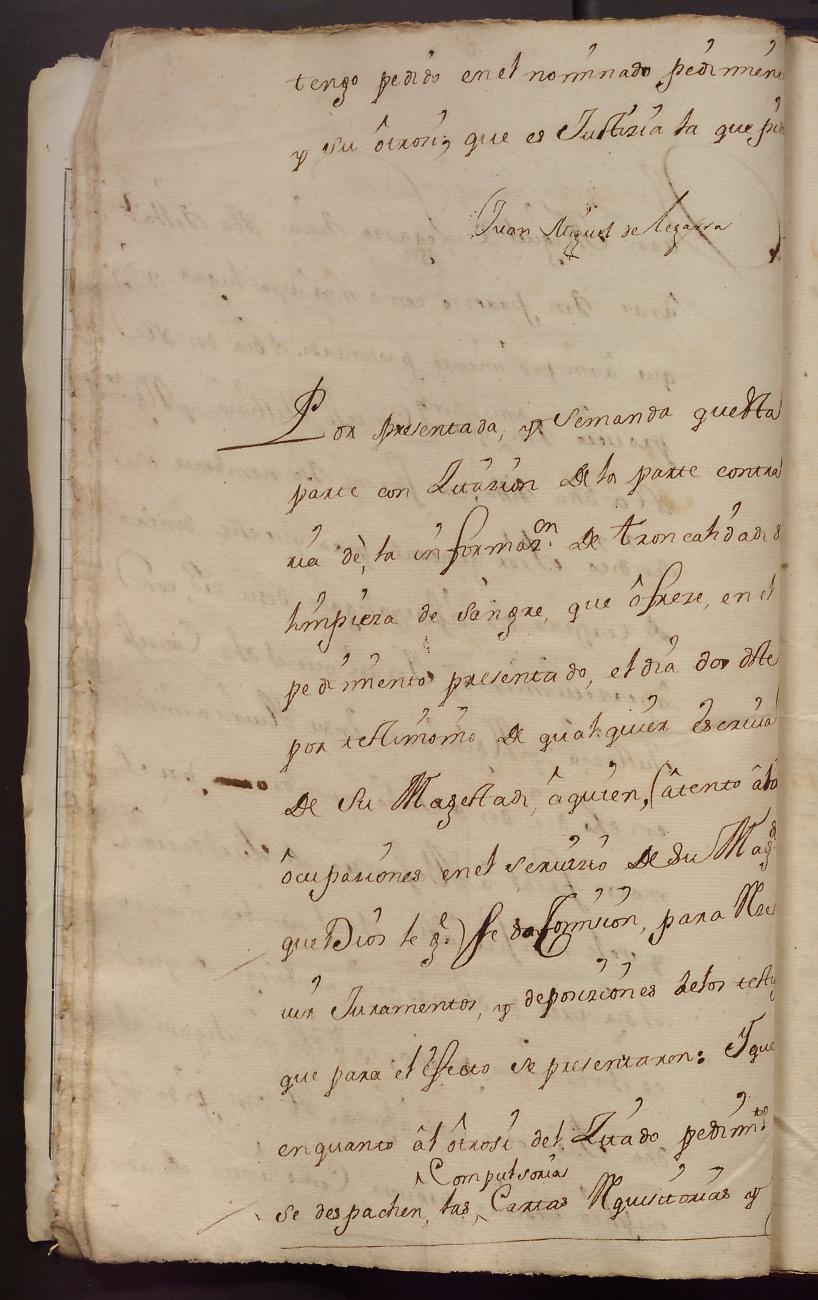 tengo pedido en el nominado pedimen
y su ôtrosi; que es Justizia la que pi
Juan Miguel de Legarra
Por presentada, y Semanda que Esta
parte con Zitazion De la parte contra
ria dè, la informaz.on De troncalidad, &
limpieza de sangre, que ôfreze, en el
pedimento presentado, el dia dos dste
por testimonio De qualquier Escriva
De Su Magestad, âquien, (âtento âla
ôcupaziones en el servizio De Su Mag.d
que Dios le g.e) se da Comision, para Rze
uir Juramentos, y deposiziones delos testi
que para el Efecto se presentaren: Y que
enquanto âl ôtrosi del Zitado pedim.to
se despachen, las, ^Compulsorias Cartas Rquisitorias y